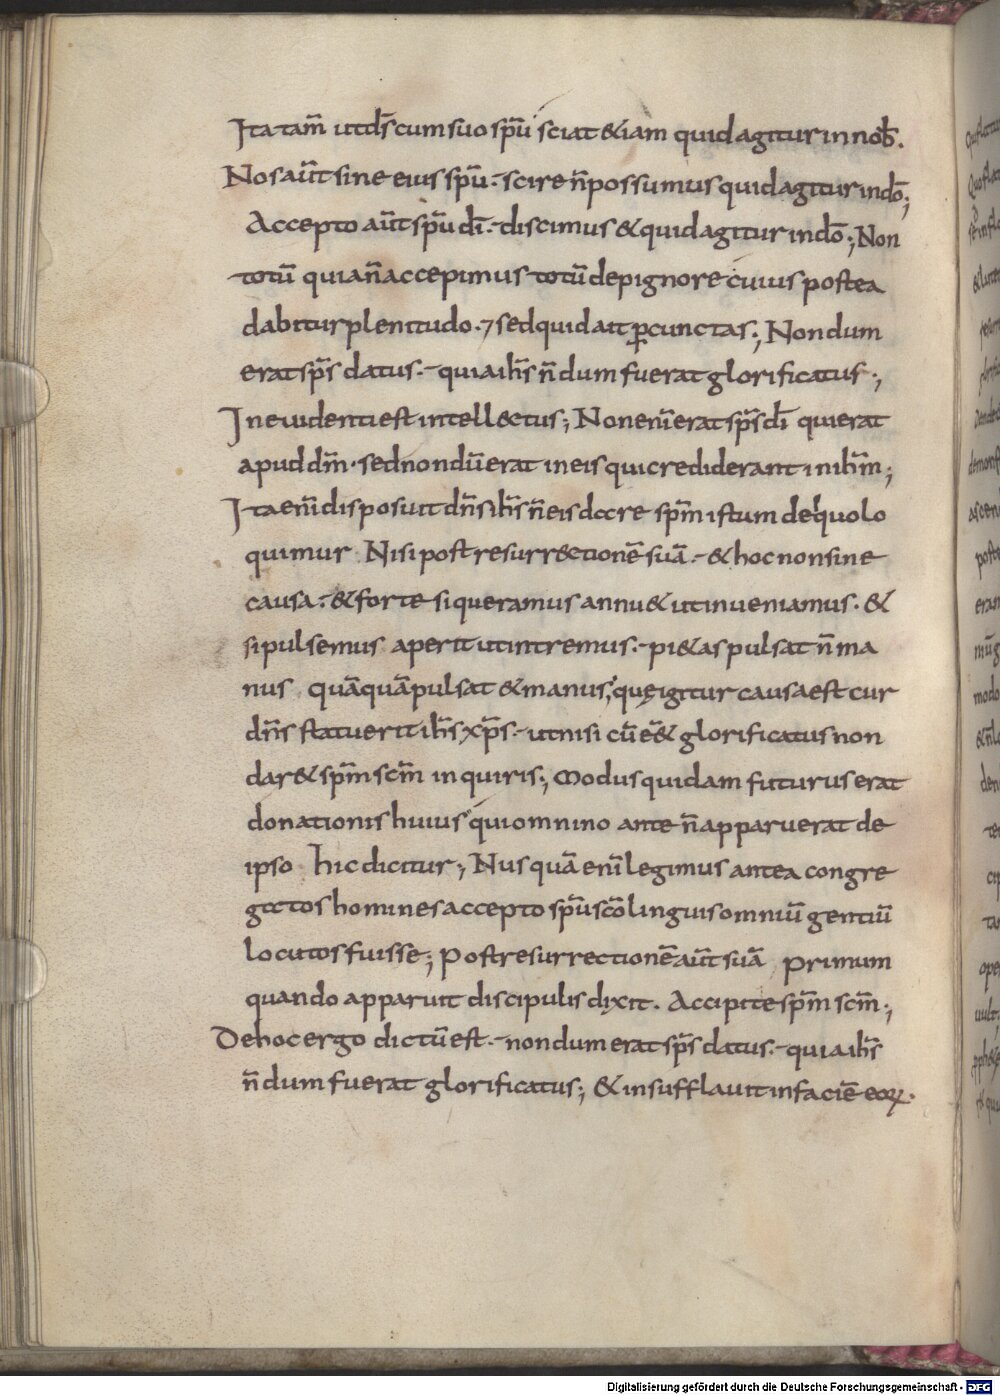 Ita tam̄ ut ds̄ cum suo spū sciat & iam quid agitur in nob̄.
Nos aūt sine eius spū. scire n̄ possumus quid agitur in dō;
Accepto aūt spū dī. discimus & quid agitur in dō; Non
totū quia n̄ accepimus totū de pignore cuius postea
dabitur plenitudo. sed quid ait ꝑcunctas; Nondum
erat sp̄s datus. quia ih̄s n̄dum fuerat glorificatus;
In evidenti est intellectus; Non enī erat sp̄s dī qui erat
apud dm̄. sed nondū erat in eis qui crediderant in ihm̄;
Ita enī disposuit dn̄s ih̄s n̄ eis dare spm̄ istum de quo lo
quimur Nisi post resurr&ctionē suā. & hoc non sine
causa. & forte si queramus annu& ut inveniamus. &
si pulsemus aperit ut intremus. pi&as pulsat n̄ ma
nus quāquā pulsat & manus, quę igitur causa est cur
dn̄s statuerit ih̄s xp̄s. ut nisi cū eē& glorificatus non
dar& spm̄ scm̄ inquiris; Modus quidam futurus erat
donationis huius qui omnino ante n̄ apparuerat de
ipso hic dicitur; Nusquā enī legimus antea congre
gatos homines accepto spū scō linguis omniū gentiū
locutos fuisse; post resurrectionē aūt suā primum
quando apparuit discipulis dixit. Accipite spm̄ scm̄;
De hoc ergo dictū est. nondum erat sp̄s datus. quia ih̄s
n̄dum fuerat glorificatus; & insufflavit in faciē eoꝝ.
Digitalisierung gefördert durch die Deutsche Forschungsgemeinschaft - DFG